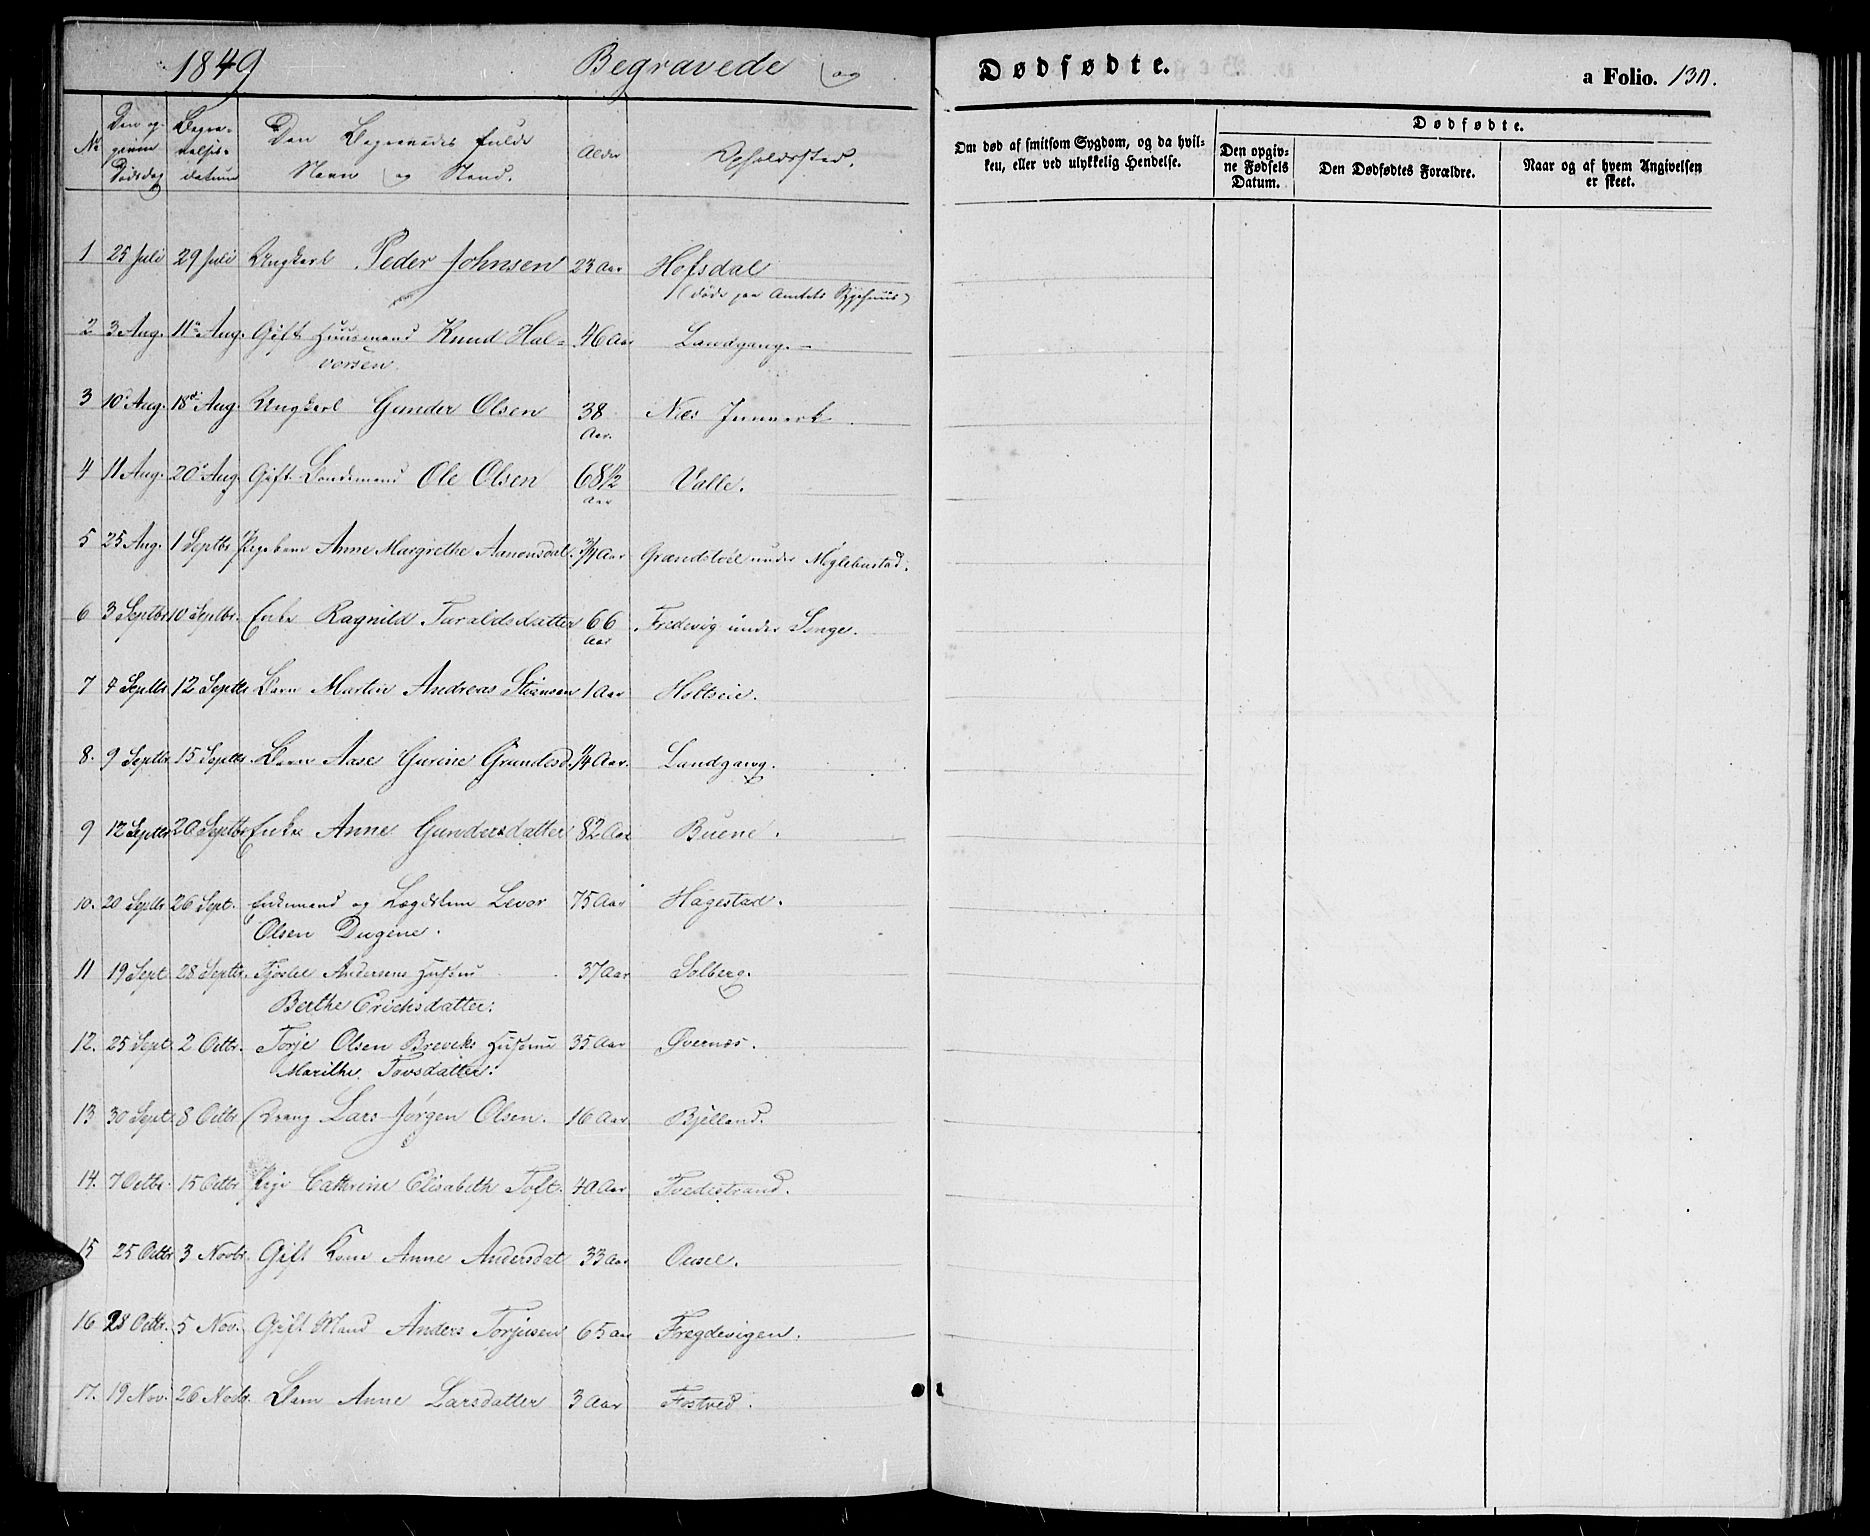 1849 Begravede og Dødfødte. a Folio. 130.
No Den opgivne Dødsdag Begravelses-datum Den Begravedes fulde Navn og Stand. Alder Opholdssted.
Om død af smitsom Sygdom, og da hvilken, eller ved ulykkelig Hendelse.
Dødfødte.
Den opgivne Fødsels Datum. Den Dødfødtes Forældre. Naar og af hvem Angivelsen er skeet.
1 25 Juli 29 Juli Ungkarl Peder Johnsen 23 Aar Hofsdal
(døde paa Amtets Sygehuus)
2 3 Aug. 11te Aug. Gift Huusmand Knud Hal- 46 Aar Landgang.
vorsen.
3 10 Aug. 18de Aug. Ungkarl Gunder Olsen 38 Aar. Næs Jernverk.
4 11 Aug. 20de Aug. Gift Bondemand Ole Olsen 68 1/2 Aar Valle.
5 25 Aug. 1 Septbr Pigebarn Anne Margrethe Aanonsdat. 3/4 Aar Grændstøel under Møglebustad.
6 3 Septbr 10 Septbr. Enke Ragnild Taraldsdatter 66 Aar Fredevig under Songe.
7 4 Septbr 12 Septbr Barn Martin Andreas Steansen 1 Aar Holtseie.
8. 9 Septbr 15 Septbr. Barn Aase Gurine Grundesd. 1/4 Aar. Landgang.
9 12 Septbr 20 Septbr Enke Anne Gundersdatter 82 Aar Buene.
10. 20 Septbr 26 Sept. Enkemand og Lægdslem Levor 75 Aar Hagestad.
Olsen Dugene.
11 19 Sept 28 Septbr. Tjøstel Andersens Hustru 37 Aar Solberg.
Berthe Erichsdatter.
12. 25 Sept. 2 Octbr. Torje Olsen Breveks Hustru 35 Aar Øvernæs.
Marithe Tovsdatter.
13 30 Sept. 8 Octbr Dreng Lars Jørgen Olsen. 16 Aar Bjelland.
14. 7 Octbr. 15 Octbr Pige Cathrine Elisabeth Toft. 40 Aar Tvedestrand.
15 25 Octbr 3 Novbr. Gift Kone Anne Andersdat 33 Aar Ousel.
16 28 Octbr. 5 Nov. Gift Mand Anders Torjusen 65 aar Fregdevigen.
17. 19 Nov. 26 Novbr. Barn Anne Larsdatter 3 Aar Fostved.